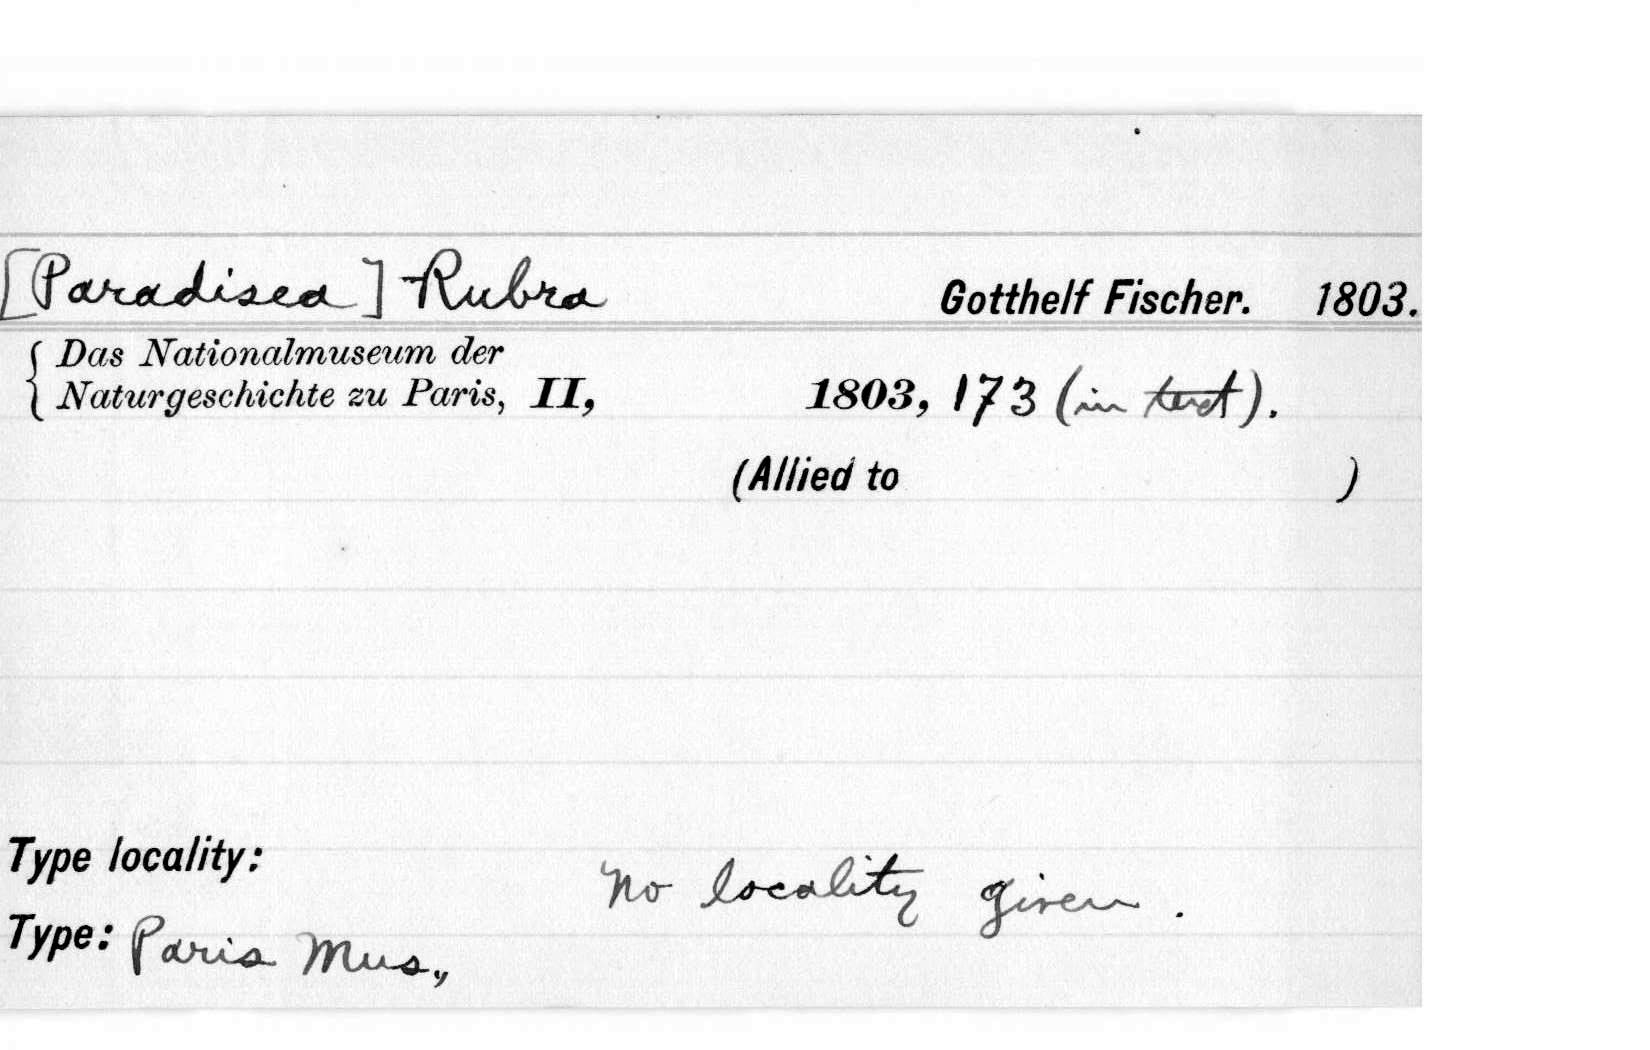 [Paradisea] Rubra Gotthelf Fischer. 1803.
{ Das Nationalmuseum der
Naturgeschichte zu Paris, II, 1803, 173 (in text).
(Allied to )
Type locality:
No locality given.
Type: Paris Mus.,